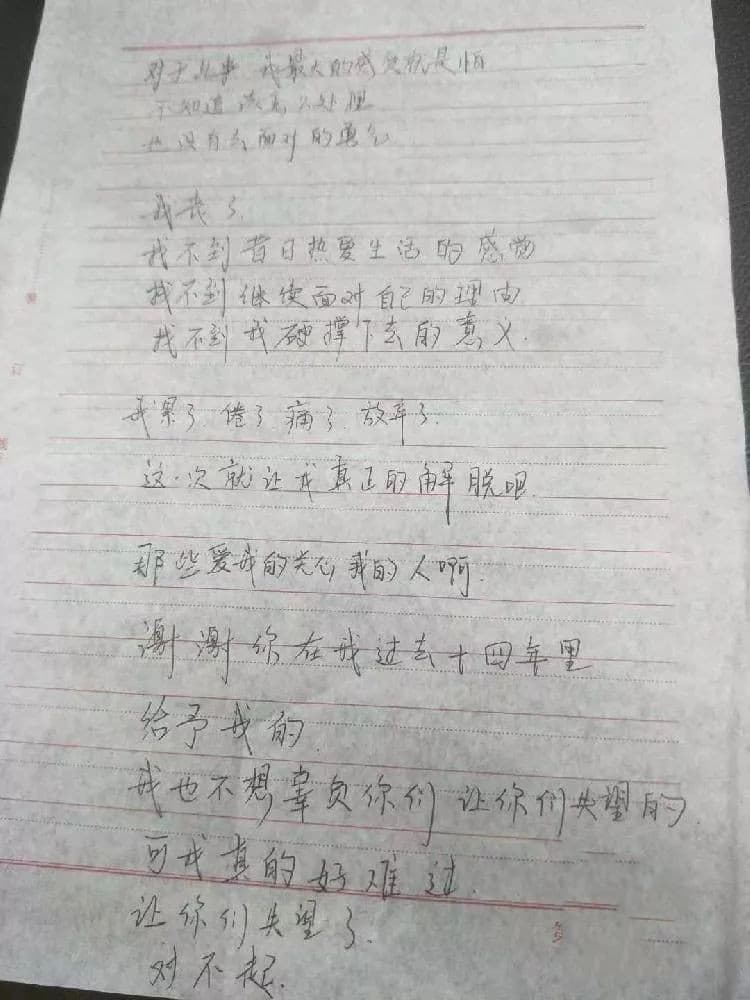 对于 我最大的感觉就是怕
不知道该怎么处理
也没有 面对的勇气
我丧了.
找不到昔日热爱生活的感觉
找不到继续面对自己的理由
找不到我硬撑下去的意义.
我累了.倦了.痛了.放弃了.
这次就让我真正的解脱吧.
那些爱我的关心我的人啊.
谢谢你在我过去十四年里
给予我的.
我也不想辜负你们 让你们失望的.
可我真的好难过.
让你们失望了.
对不起.